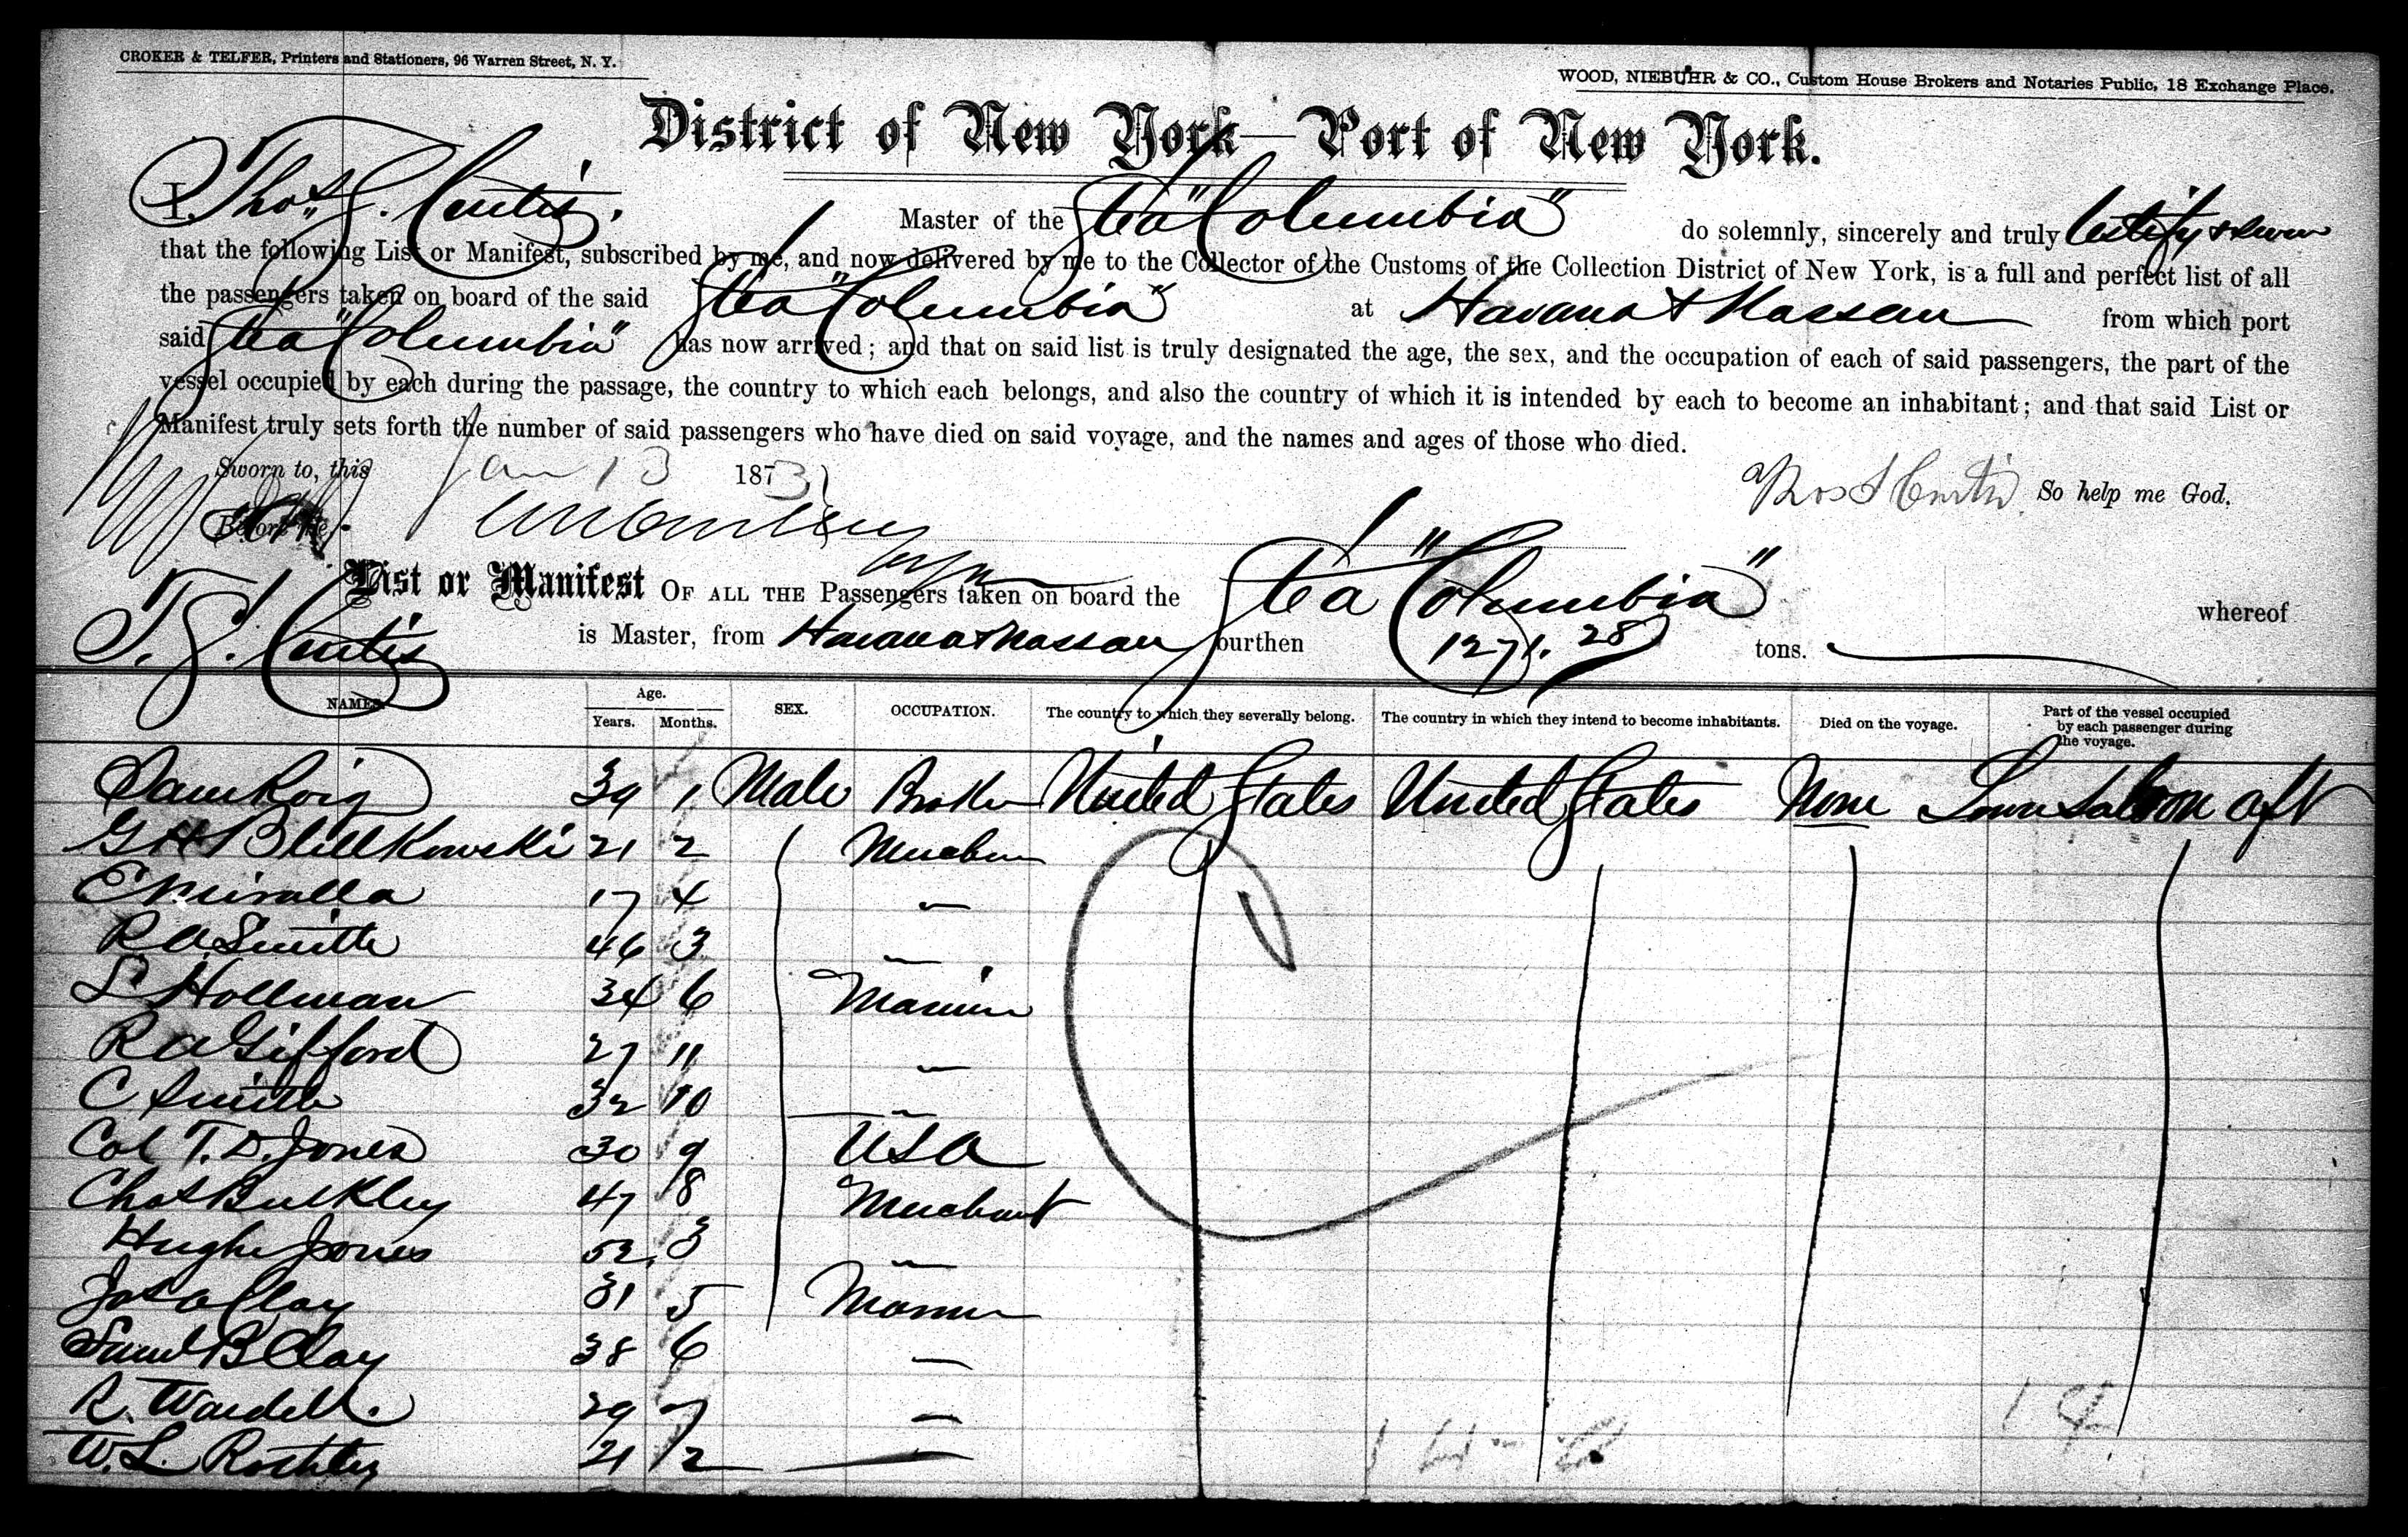 CROKER & TELFER, Printers and Stationers, 96 Warren Street, N. Y.
WOOD, NIEBUHR & CO., Custom House Brokers and Notaries Public, 18 Exchange Place.
District of New York—Port of New York.
I, Thos. S. Curtis, Master of the Str "Columbia" do solemnly, sincerely and truly Certify & swear
that the following List or Manifest, subscribed by me, and now delivered by me to the Collector of the Customs of the Collection District of New York, is a full and perfect list of all
the passengers taken on board of the said Str "Columbia" at Havana & Nassau from which port
said Str "Columbia" has now arrived; and that on said list is truly designated the age, the sex, and the occupation of each of said passengers, the part of the
vessel occupied by each during the passage, the country to which each belongs, and also the country of which it is intended by each to become an inhabitant; and that said List or
Manifest truly sets forth the number of said passengers who have died on said voyage, and the names and ages of those who died.
Sworn to, this Jan 13 1873
Thos S Curtis So help me God.
Before me
List or Manifest OF ALL THE Passengers taken on board the Str "Columbia" whereof
T. S. Curtis is Master, from Havana & Nassau burthen 1271.28 tons.
NAMES. Age. Years. Months. SEX. OCCUPATION. The country to which they severally belong. The country in which they intend to become inhabitants. Died on the voyage. Part of the vessel occupied by each passenger during the voyage.
Sam Roig 39 1 Male Broker United States United States None Saloon aft
G H 21 2 Merchan
17 4 "
R A Smith 46 3 "
L Hollman 34 6 Marin
R A Gifford 27 11 "
C Smith 32 10 "
Col T. D. Jones 30 9 USA
Chas Bulkley 47 8 Merchant
Hugh Jones 52 3 "
Jas A Clay 31 5 Marin
Saml B Clay 38 6 "
R. Wardell. 29 7 "
W. L. 21 2 "